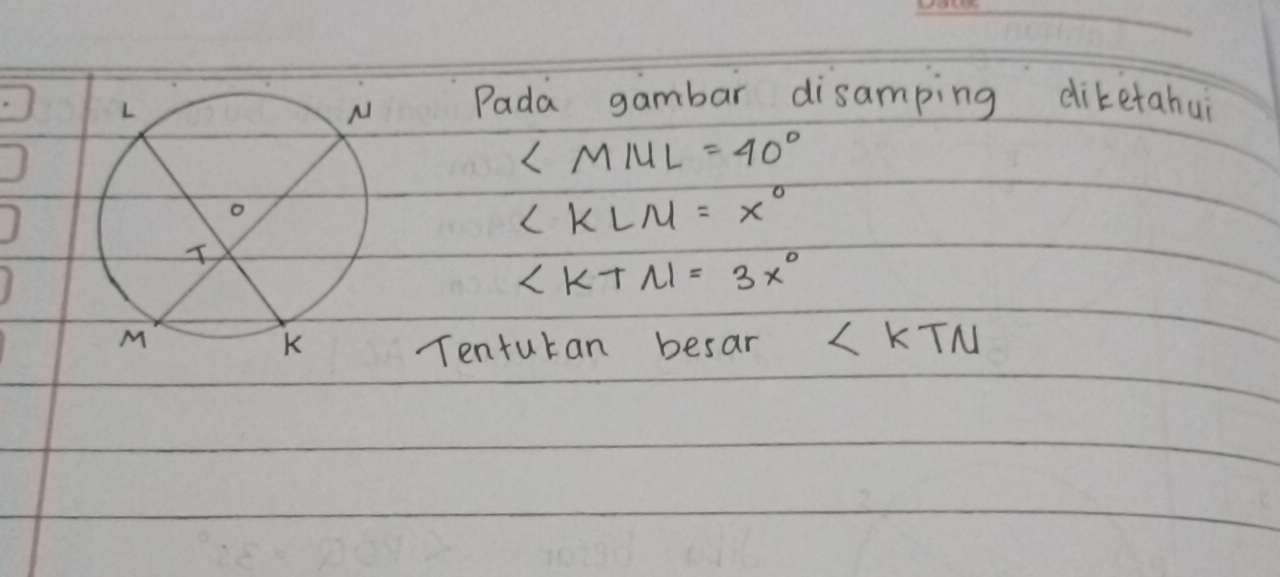 Date:
L
N
Pada gambar disamping diketahui
< MNL = 40°
O
< KLN = x°
T
< KTN = 3x°
M
K
Tentukan besar < KTN